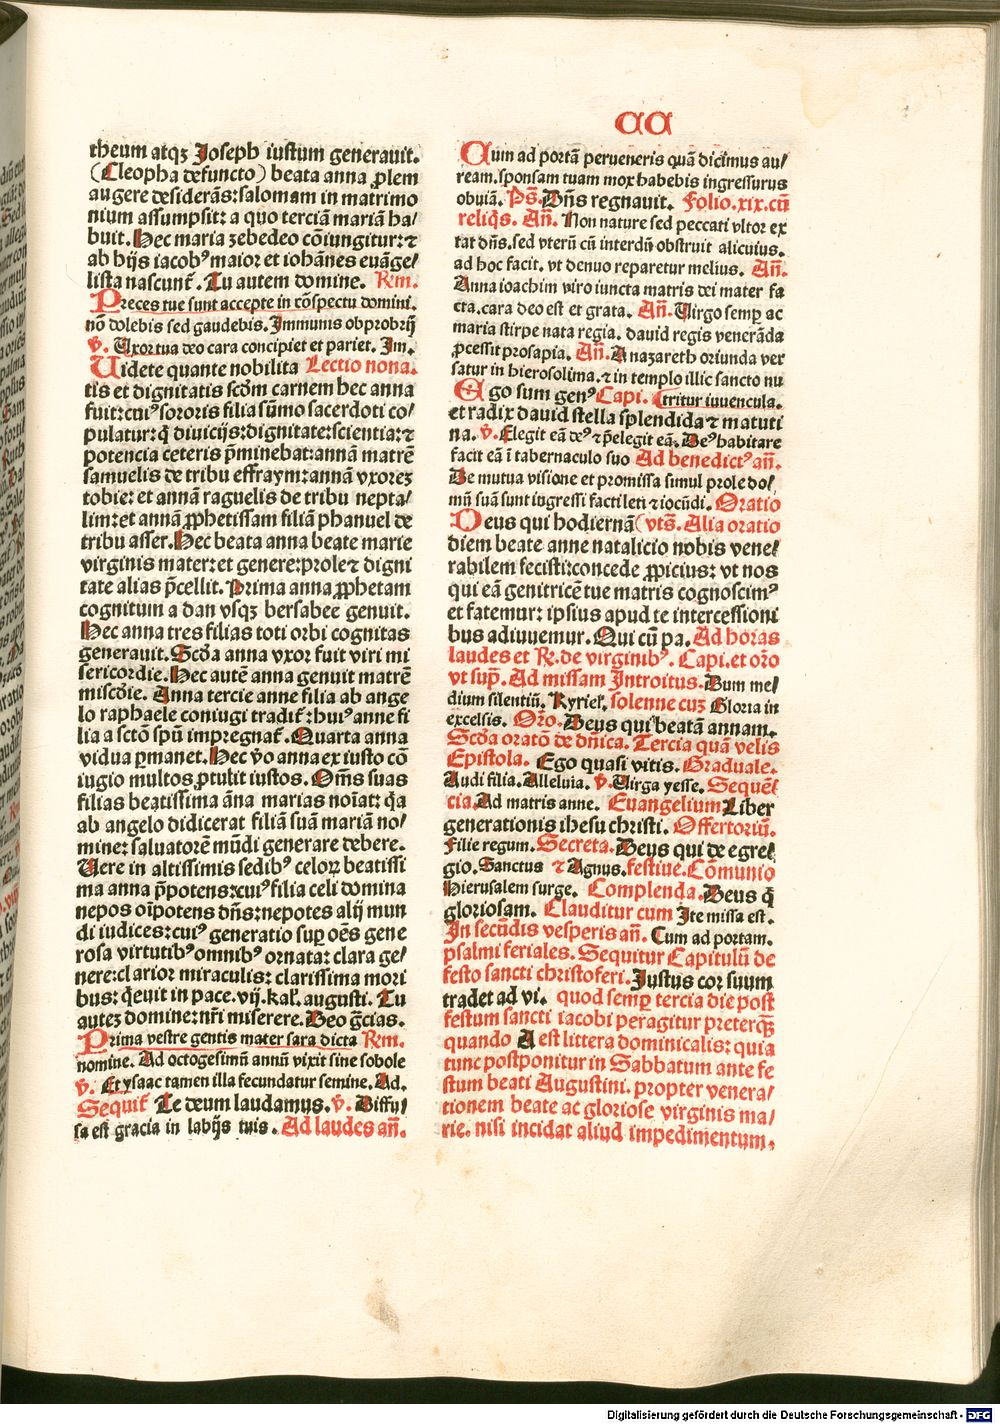 CC
theum atqꝫ Joseph iustum generauit.
(Cleopha defuncto) beata anna ꝓlem
augere desiderãs: salomam in matrimo
nium assumpsit: a quo terciã mariã ha/
buit. Hec maria zebedeo cõiungitur: ⁊
ab hijs iacobꝰ maior et iohãnes euãge/
lista nascunt᷑. Tu autem domine. Rm.
Preces tue sunt accepte in cõspectu domini.
nõ dolebis sed gaudebis. Immunis obprobrij
v̾. Uxor tua deo cara concipiet et pariet. Im.
Uidete quante nobilita Lectio nona.
tis et dignitatis scd̃m carnem hec anna
fuit: cuiꝰ sororis filia sũmo sacerdoti co/
pulatur: q̃ diuicijs: dignitate: scientia: ⁊
potencia ceteris p̃minebat: annã matrẽ
samuelis de tribu effraym: annã vxoreꝫ
tobie: et annã raguelis de tribu nepta/
lim: et annã ꝓphetissam filiã phanuel de
tribu asser. Hec beata anna beate marie
virginis mater: et genere: prole ⁊ digni
tate alias p̃cellit. Prima anna ꝓphetam
cognitum a dan vsqꝫ bersabee genuit.
Hec anna tres filias toti orbi cognitas
generauit. Scd̃a anna vxor fuit viri mi
sericordie. Hec autẽ anna genuit matrẽ
miscd̃ie. Anna tercie anne filia ab ange
lo raphaele coniugi tradit᷑: huiꝰ anne fi
lia a sctõ spũ impregnat᷑. Quarta anna
vidua ꝑmanet. Hec v̾o anna ex iusto cõ
iugio multos ꝓtulit iustos. Om̃s suas
filias beatissima ãna marias noĩat: q̃a
ab angelo didicerat filiã suã mariã no/
mine: saluatorẽ mũdi generare debere.
Uere in altissimis sedibꝰ celoꝝ beatissi
ma anna p̃potens: cuiꝰ filia celi domina
nepos oĩpotens dñs: nepotes alij mun
di iudices: cuiꝰ generatio suꝑ oẽs gene
rosa virtutibꝰ omnibꝰ ornata: clara ge/
nere: clarior miraculis: clarissima mori
bus: q̃euit in pace. vij. kal᷑. augusti. Tu
auteꝫ domine: nr̃i miserere. Deo gr̃cias.
Prima vestre gentis mater sara dicta Rm.
nomine. Ad octogesimũ annũ vixit sine sobole
v̾. Et ysaac tamen illa fecundatur semine. Ad.
Sequit᷑ Te deum laudamus. v̾. Diffu/
sa est gracia in labijs tuis. Ad laudes añ.
Cum ad portã perueneris quã dicimus au/
ream. sponsam tuam mox habebis ingressurus
obuiã. Ps̃. Dñs regnauit. Folio. xix. cũ
reliq̃s. Añ. Non nature sed peccati vltor ex
tat dñs. sed vterũ cũ interdũ obstruit alicuius.
ad hoc facit. vt denuo reparetur melius. Añ.
Anna ioachim viro iuncta matris dei mater fa
cta. cara deo est et grata. Añ. Uirgo semꝑ ac
maria stirpe nata regia. dauid regis venerãda
ꝓcessit prosapia. Añ. A nazareth oriunda ver
satur in hierosolima. ⁊ in templo illic sancto nu
Ego sum genꝰ Capi. (tritur iuuencula.
et radix dauid stella splendida ⁊ matuti
na. v̾. Elegit eã deꝰ ⁊ p̃elegit eã. Deꝰ habitare
facit eã ĩ tabernaculo suo Ad benedictꝰ añ.
De mutua visione et promissa simul prole do/
mũ suã sunt ingressi facti leti ⁊ iocũdi. Oratio
Deus qui hodiernã (vts̃. Alia oratio
diem beate anne natalicio nobis vene/
rabilem fecisti: concede ꝓpicius: vt nos
qui eã genitricẽ tue matris cognoscimꝰ
et fatemur: ipsius apud te intercessioni
bus adiuuemur. Qui cũ pa. Ad horas
laudes et R̃. de virginibꝰ. Capi. et oro
vt supᷓ. Ad missam Introitus. Dum me/
dium silentiũ. Kyriel᷑. solenne cuꝫ Gloria in
excelsis. Or̃o. Deus qui beatã annam.
Scd̃a oratõ de dñica. Tercia quã velis
Epistola. Ego quasi vitis. Graduale.
Audi filia. Alleluia. v̾. Uirga yesse. Sequẽ/
cia. Ad matris anne. Euangelium Liber
generationis ihesu christi. Offertoriũ.
Filie regum. Secreta. Deus qui de egre/
gio. Sanctus ⁊ Agnus. festiue. Cõmunio
Hierusalem surge. Complenda. Deus q̃
gloriosam. Clauditur cum Ite missa est.
In secũdis vesperis añ. Cum ad portam.
psalmi feriales. Sequitur Capitulũ de
festo sancti christoferi. Justus cor suum
tradet ad vi. quod semꝑ tercia die post
festum sancti iacobi peragitur preterqᷓꝫ
quando A est littera dominicalis: quia
tunc postponitur in Sabbatum ante fe
stum beati Augustini. propter venera/
tionem beate ac gloriose virginis ma/
rie. nisi incidat aliud impedimentum.
Digitalisierung gefördert durch die Deutsche Forschungsgemeinschaft - DFG